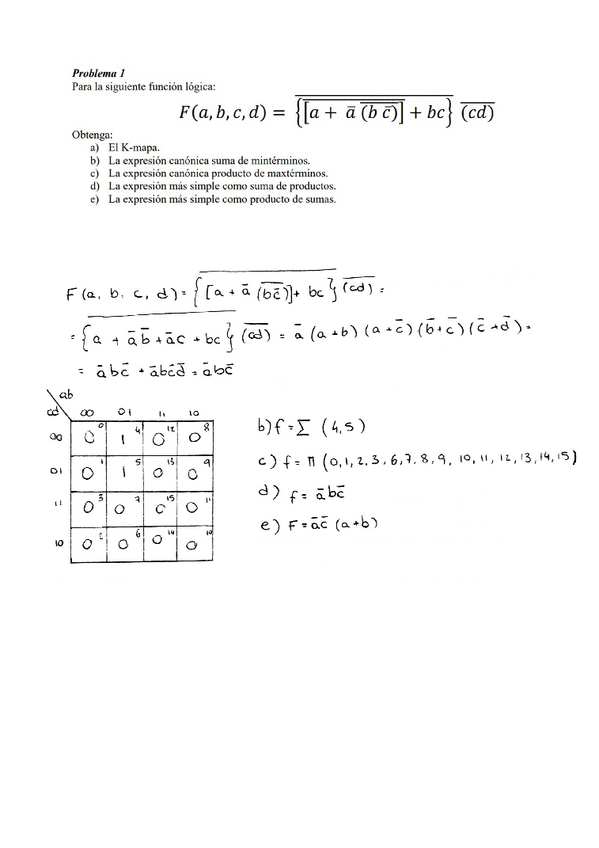 Problema 1
Para la siguiente función lógica:
F(a, b, c, d) = \overline{\{[a + \bar{a} \overline{(b \bar{c})}] + bc\}} \overline{(cd)}
Obtenga:
a) El K-mapa.
b) La expresión canónica suma de mintérminos.
c) La expresión canónica producto de maxtérminos.
d) La expresión más simple como suma de productos.
e) La expresión más simple como producto de sumas.
F(a, b, c, d) = \overline{\{[a + \bar{a} \overline{(b\bar{c})}] + bc\}} \overline{(cd)} =
= \overline{\{a + \bar{a}\bar{b} + \bar{a}c + bc\}} \overline{(cd)} = \bar{a} (a+b) (a+\bar{c}) (\bar{b}+\bar{c}) (\bar{c}+\bar{d}) =
= \bar{a}b\bar{c} + \bar{a}b\bar{c}\bar{d} = \bar{a}b\bar{c}
ab
cd 00 01 11 10
00 0 0 1 4 0 12 0 8
01 0 1 1 5 0 13 0 9
11 0 3 0 7 0 15 0 11
10 0 2 0 6 0 14 0 10
b) f = Σ (4,5)
c) f = Π (0,1,2,3,6,7,8,9,10,11,12,13,14,15)
d) f = \bar{a}b\bar{c}
e) F = \bar{a}\bar{c} (a+b)